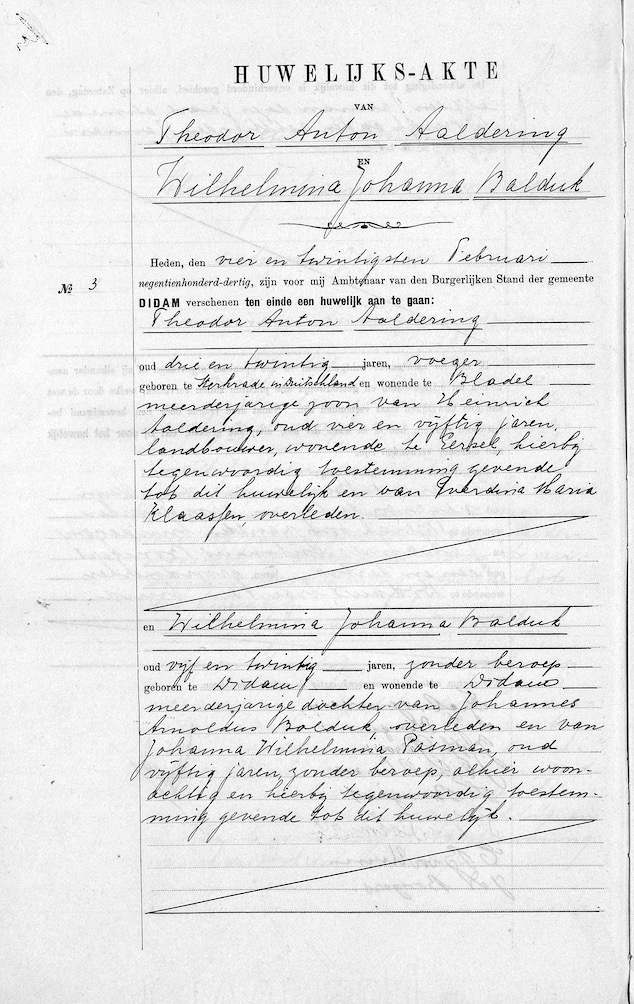 HUWELIJKS-AKTE
VAN
Theodor Anton Aaldering
EN
Wilhelmina Johanna Balduk
Heden, den vier en twintigsten Februari
negentienhonderd-dertig, zijn voor mij Ambtenaar van den Burgerlijken Stand der gemeente
№ 3
DIDAM verschenen ten einde een huwelijk aan te gaan:
Theodor Anton Aaldering
oud drie en twintig jaren, voeger
geboren te in Duitschland en wonende te Bladel
meerderjarige zoon van Heinrich
Aaldering, oud vier en vijftig jaren,
landbouwer, wonende te Eersel, hierbij
tegenwoordig toestemming gevende
tot dit huwelijk en van Everdina Maria
Klaassen, overleden.
en Wilhelmina Johanna Balduk
oud vijf en twintig jaren, zonder beroep
geboren te Didam en wonende te Didam
meerderjarige dochter van Johannes
Arnoldus Balduk, overleden en van
Johanna Wilhelmina Pasman, oud
vijftig jaren, zonder beroep, alhier woon-
achtig en hierbij tegenwoordig toestem-
ming gevende tot dit huwelijk.